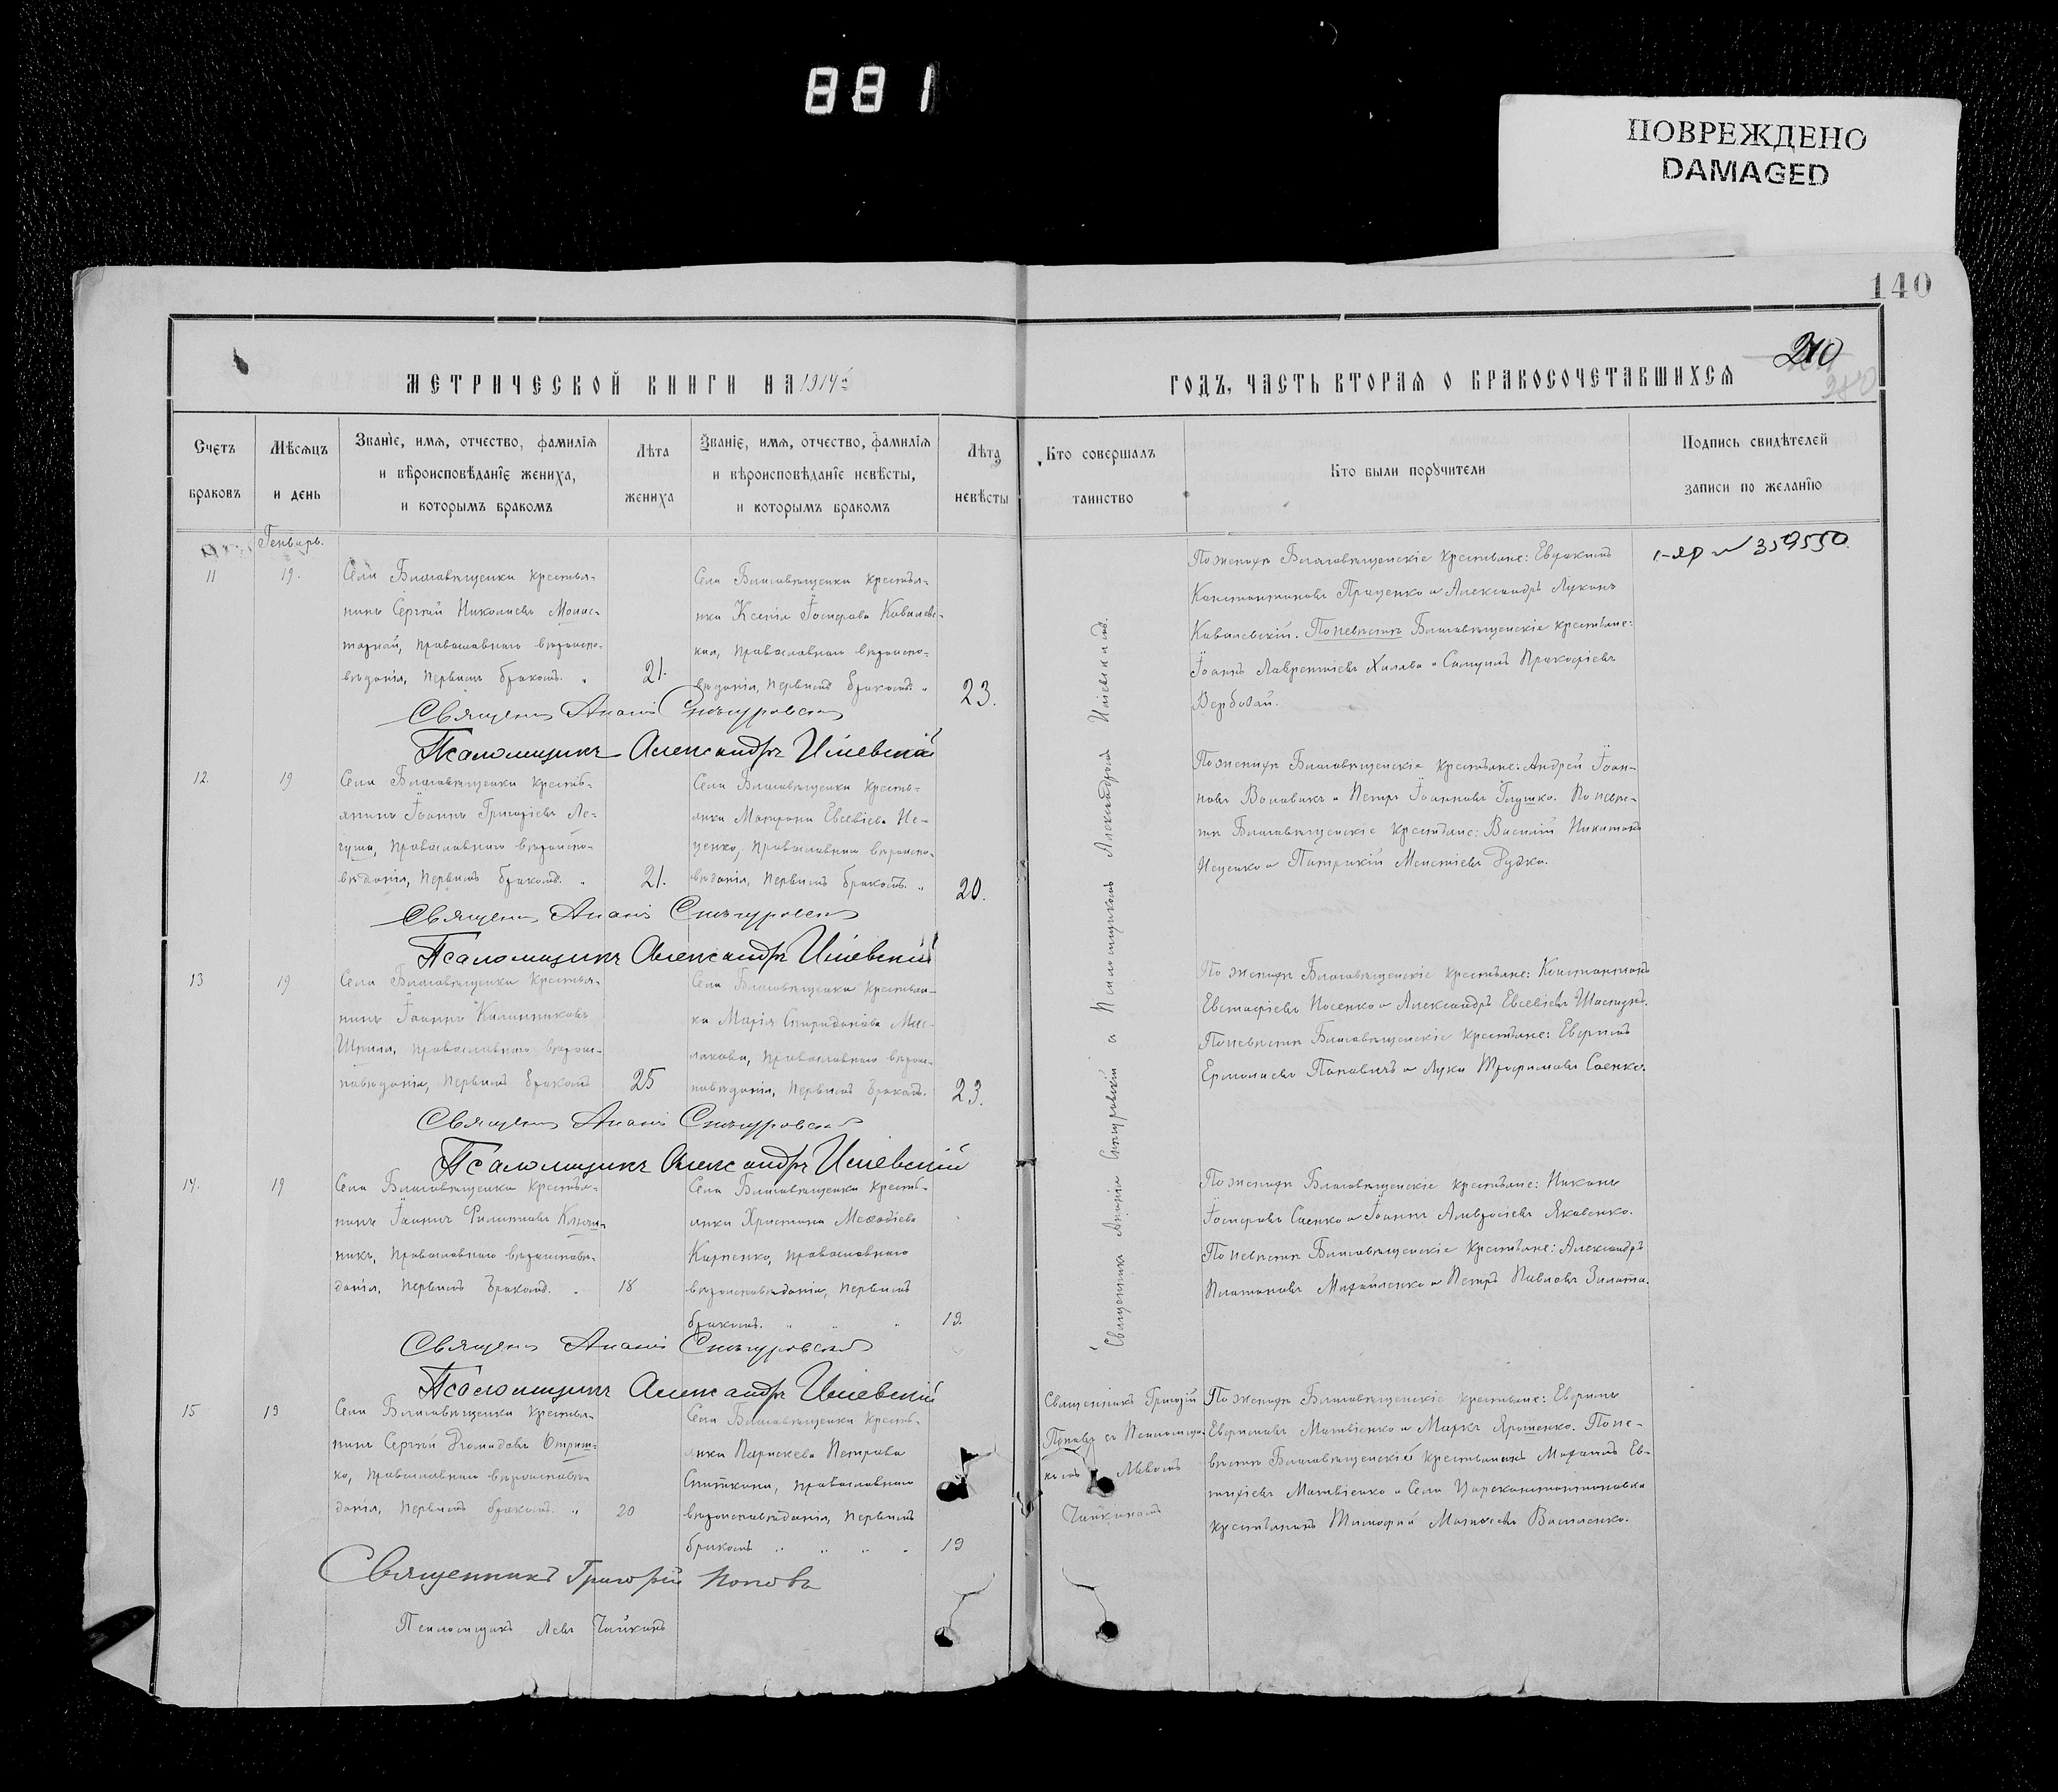 881
ПОВРЕЖДЕНО
DAMAGED
140
210
МЕТРИЧЕСКОЙ КНИГИ НА 1914й
ГОДЪ, ЧАСТЬ ВТОРАЯ О БРАКОСОЧЕТАВШИХСЯ
Счетъ браковъ
Мѣсяцъ и день
Званіе, имя, отчество, фамилія
и вѣроисповѣданіе жениха,
и которымъ бракомъ
Лѣта
жениха
Званіе, имя, отчество, фамилія
и вѣроисповѣданіе невѣсты,
и которымъ бракомъ
Лѣта
невѣсты
Кто совершалъ
таинство
Кто были поручители
Подпись свидѣтелей
записи по желанію
Генварь.
11
19.
Села Благовѣщенки крестья-
нинъ Сергѣй Николаевъ Монас-
тырной, православнаго вѣроиспо-
вѣданія, первымъ бракомъ. "
21.
Села Благовѣщенки крестья-
нка Ксенія Іосифова Ковалевс-
кая, православнаго вѣроиспо-
вѣданія, первымъ бракомъ. "
23.
По женихѣ Благовѣщенскіе крестьяне: Евдокимъ
Константиновъ Праценко и Александръ Лукинъ
Ковалевскій. По невѣстѣ Благовѣщенскіе крестьяне:
Іоаннъ Лаврентіевъ Халява и Самуилъ Прокофіевъ
Вербовой.
№ 359550.
Священ Ананій Снѣгуровскій
Псаломщикъ Александръ Ишевскій
12.
19
Села Благовѣщенки крестья-
янинъ Іоаннъ Григоріевъ Ле-
гуша, православнаго вѣроиспо-
вѣданія, первымъ бракомъ. "
21.
Села Благовѣщенки кресть-
янка Матрона Евсевіева Не-
ценко, православнаго вѣроиспо-
вѣданія, первымъ бракомъ. "
20.
По женихѣ Благовѣщенскіе крестьяне: Андрей Іоан-
новъ Воловикъ и Петръ Іоанновъ Глушко. По невѣс-
тѣ Благовѣщенскіе крестьяне: Василій Никитовъ
и Патрикій Дудка.
Священ Ананій Снѣгуровскій
Псаломщикъ Александръ Ишевскій
13
19
Села Благовѣщенки крестья-
нинъ Іоаннъ Калинниковъ
Шпилъ, православнаго вѣроис-
повѣданія, первымъ бракомъ
25
Села Благовѣщенки крестьян-
ка Марія Спиридонова Мас-
лакова, православнаго вѣроис-
повѣданія, первымъ бракомъ.
23.
По женихѣ Благовѣщенскіе крестьяне: Константинъ
Евстафіевъ Носенко и Александръ Евсевіевъ
По невѣстѣ Благовѣщенскіе крестьяне: Евфимъ
Ермолаевъ Поповичъ и Лука Трофимовъ Саенко.
Священ Ананій Снѣгуровскій
Псаломщикъ Александръ Ишевскій
14.
19
Села Благовѣщенки крестья-
нинъ Іоаннъ Филипповъ Ключ-
никъ, православнаго вѣроисповѣ-
данія, первымъ бракомъ. "
18
Села Благовѣщенки кресть-
янка Христина Меѳодіева
Карпенко, православнаго
вѣроисповѣданія, первымъ
бракомъ. " " "
19.
По женихѣ Благовѣщенскіе крестьяне: Никонъ
Іосифовъ Саенко и Іоаннъ Амвросіевъ Яковенко.
По невѣстѣ Благовѣщенскіе крестьяне: Александръ
Платоновъ Михайленко и Петръ Павловъ Золота.
Священ Ананій Снѣгуровскій
Псаломщикъ Александръ Ишевскій
Священникъ Ананій Снѣгуровскій и Псаломщикомъ Александромъ Ишевскимъ.
15
19
Села Благовѣщенки крестья-
нинъ Сергѣй Отриш-
ко, православнаго вѣроисповѣ-
данія, первымъ бракомъ. "
20
Села Благовѣщенки кресть-
янка Параскева Петрова
Сниткина, православнаго
вѣроисповѣданія, первымъ
бракомъ " " " "
19
Священникъ Григорій
Поповъ съ Псаломщи-
комъ Львомъ
Чайкинымъ
По женихѣ Благовѣщенскіе крестьяне: Евфимъ
Евфимовъ Матвіенко и Маркъ Ярошенко. По не-
вѣстѣ Благовѣщенскій крестьянинъ Михаилъ Ев-
тихіевъ Матвіенко и Села Цареконстантиновка
крестьянинъ Тимофей Василенко.
Священникъ Григорій Поповъ
Псаломщикъ Левъ Чайкинъ